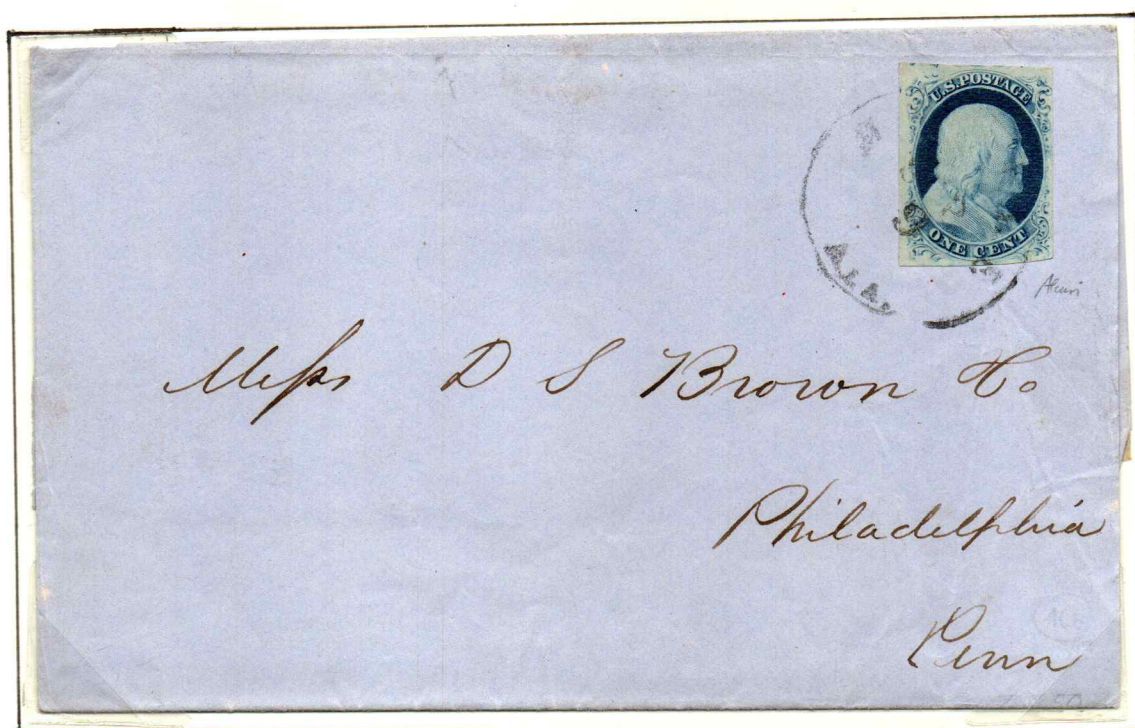 U.S. POSTAGE
ONE CENT
9
ALA.
Mess D S Brown Co
Philadelphia
Penn